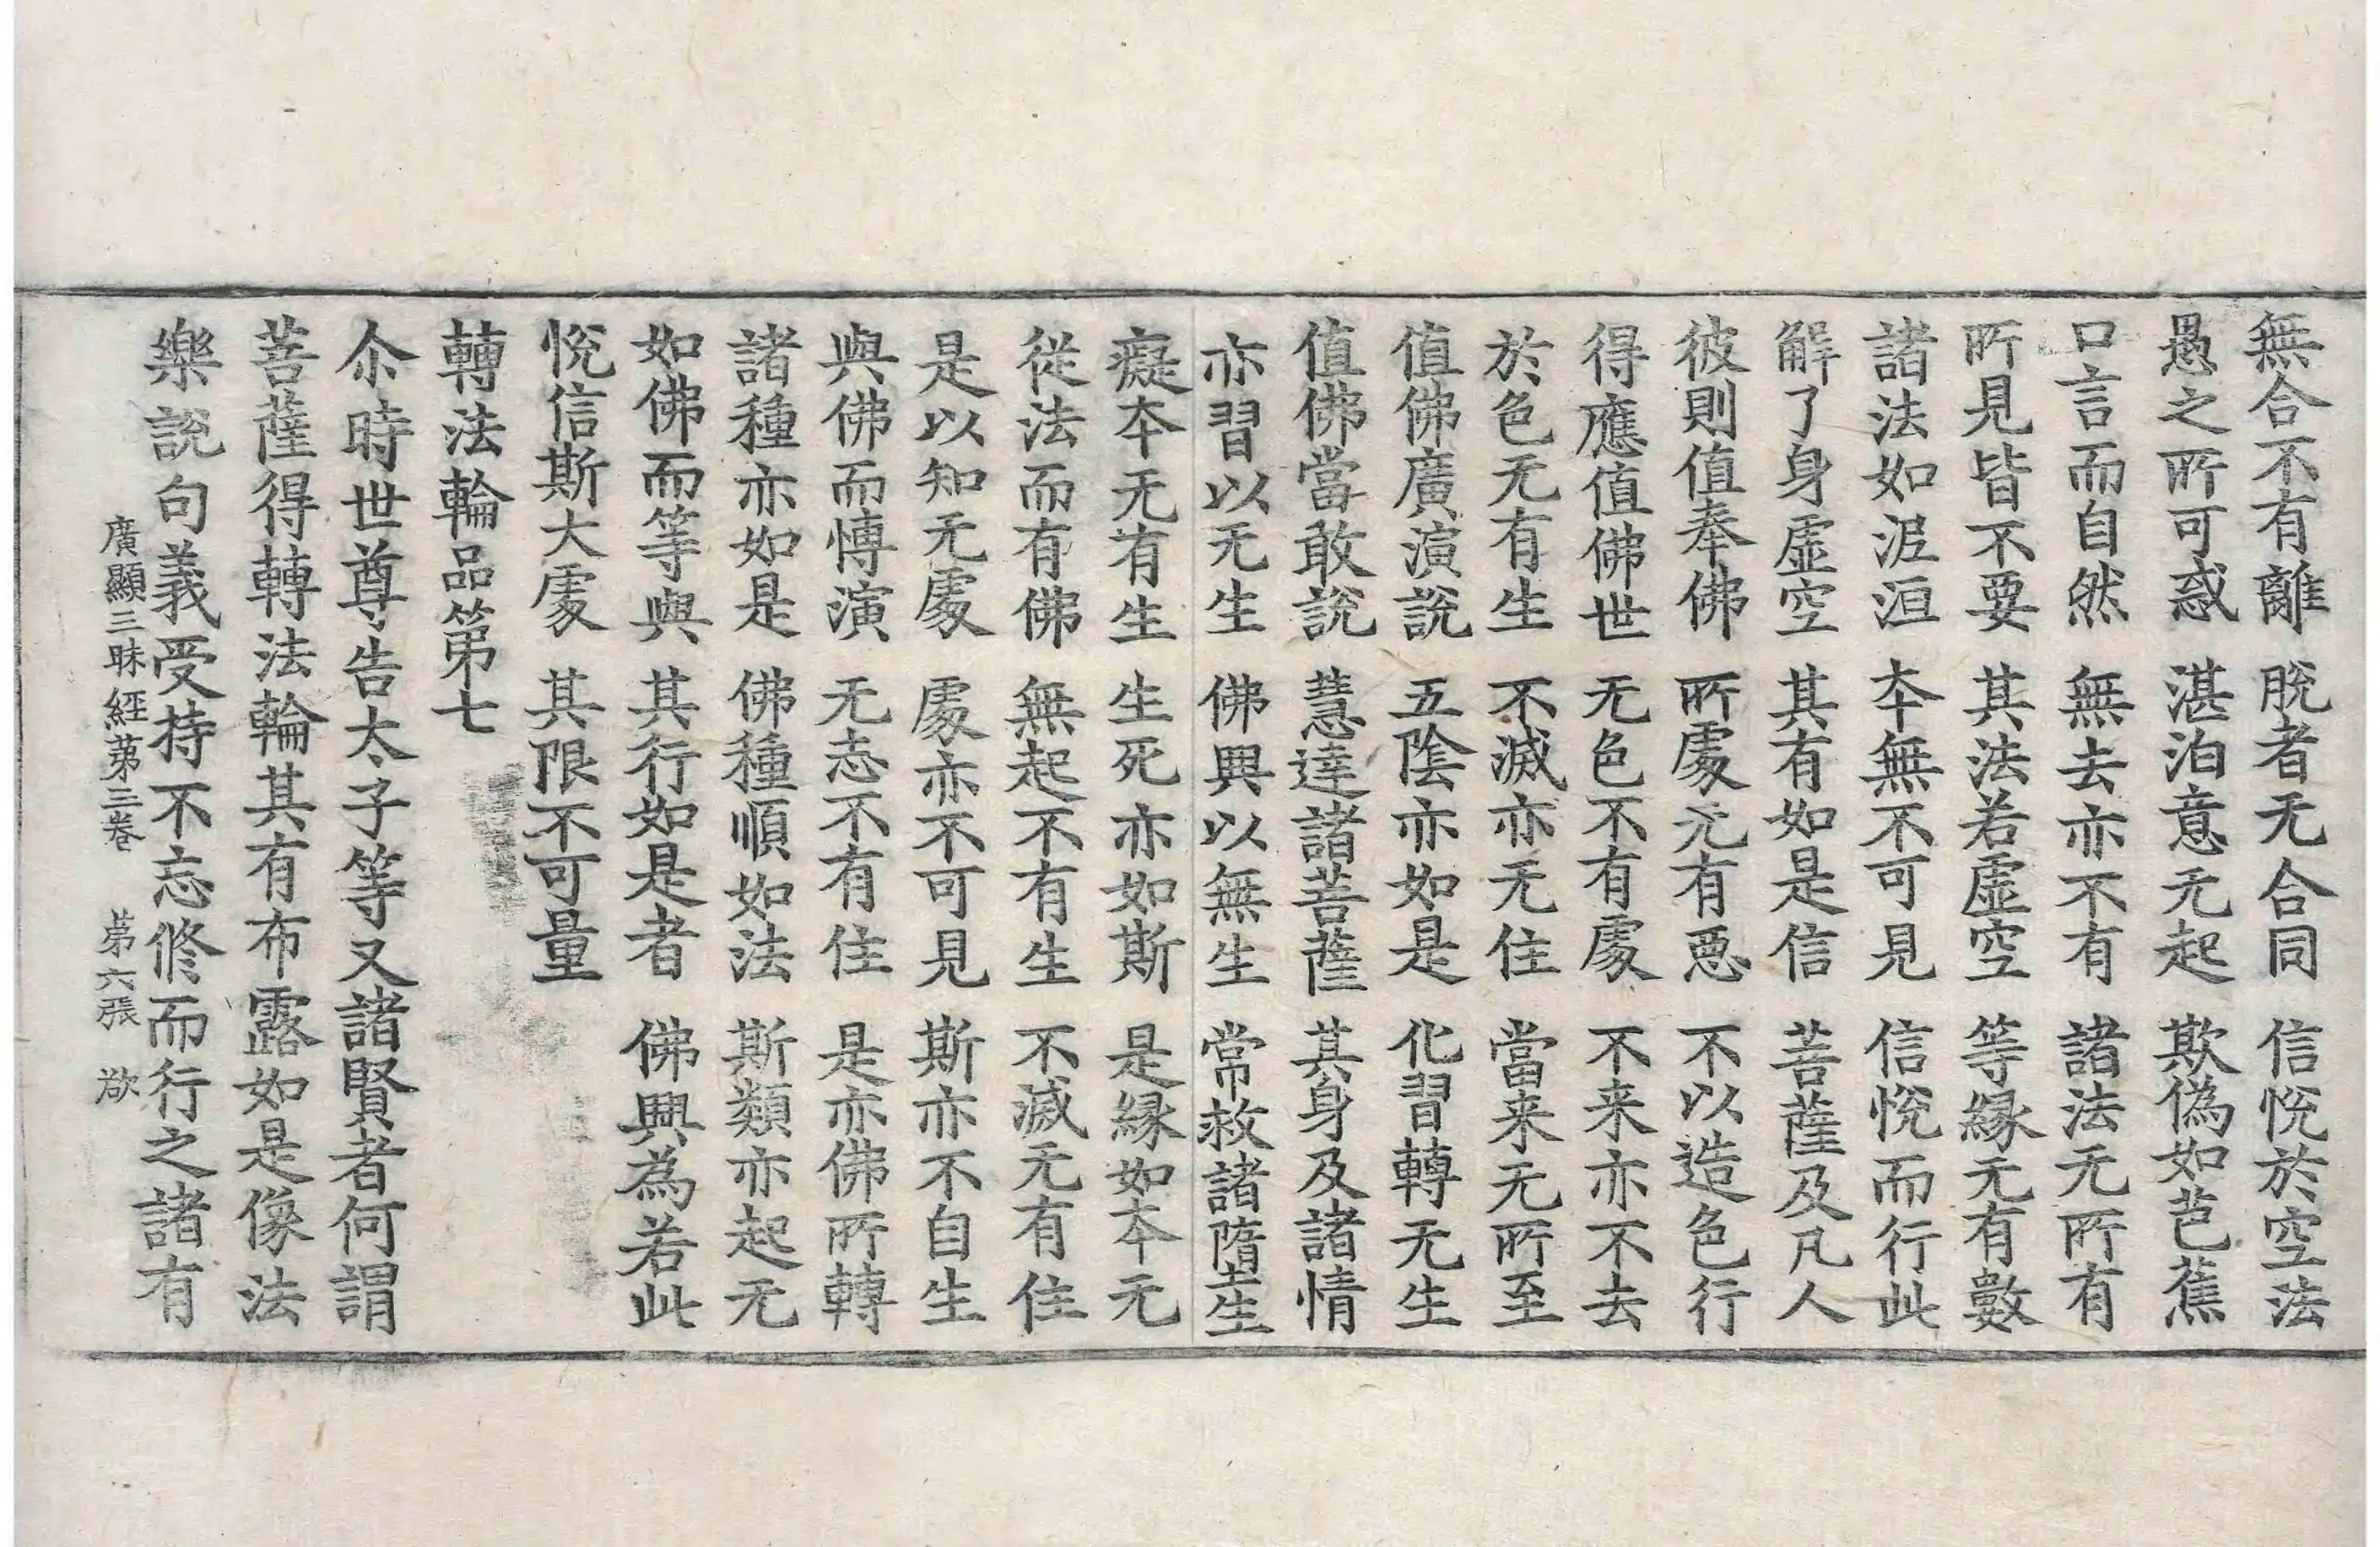 無合不有離 脫者无合同 信悅於空法
愚之所可惑 湛泊意无起 欺偽如芭蕉
口言而自然 無去亦不有 諸法无所有
所見皆不要 其法若虛空 等緣无有數
諸法如泥洹 本無不可見 信悅而行此
解了身虛空 其有如是信 菩薩及凡人
彼則值奉佛 所處无有惡 不以造色行
得應值佛世 无色不有處 不来亦不去
於色无有生 不滅亦无住 當来无所至
值佛廣演說 五陰亦如是 化習轉无生
值佛當敢說 慧達諸菩薩 其身及諸情
亦習以无生 佛興以無生 常救諸墮生
癡本无有生 生死亦如斯 是緣如本无
從法而有佛 無起不有生 不滅无有住
是以知无處 處亦不可見 斯亦不自生
與佛而愽演 无志不有住 是亦佛所轉
諸種亦如是 佛種順如法 斯類亦起无
如佛而等與 其行如是者 佛興為若此
悅信斯大處 其限不可量
轉法輪品第七
尒時世尊告太子等又諸賢者何謂
菩薩得轉法輪其有布露如是像法
樂說句義受持不忘修而行之諸有
廣顯三昧經第三卷 第六張 欲